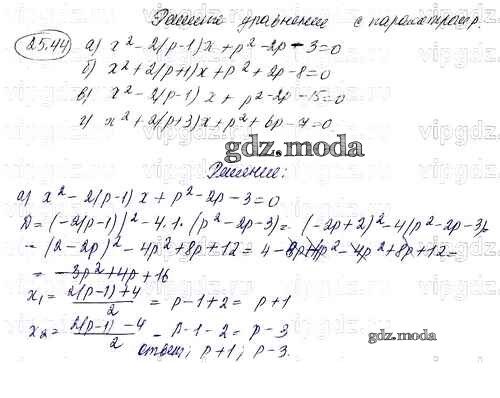 Решить уравнение с параметром р.
25.44 а) x² - 2(p-1)x + p² - 2p - 3 = 0
б) x² + 2(p+1)x + p² + 2p - 8 = 0
в) x² - 2(p-1)x + p² - 2p - 15 = 0
г) x² + 2(p+3)x + p² + 6p - 7 = 0
gdz.moda
Решение:
а) x² - 2(p-1)x + p² - 2p - 3 = 0
D = (-2(p-1))² - 4·1·(p² - 2p - 3) = (-2p+2)² - 4(p² - 2p - 3) =
= (2-2p)² - 4p² + 8p + 12 = 4 - 8p + 4p² - 4p² + 8p + 12 =
= -3p² + 4p + 16
x₁ = 2(p-1)+4 / 2 = p - 1 + 2 = p + 1
x₂ = 2(p-1)-4 / 2 = p - 1 - 2 = p - 3
gdz.moda
ответ: p+1; p-3.